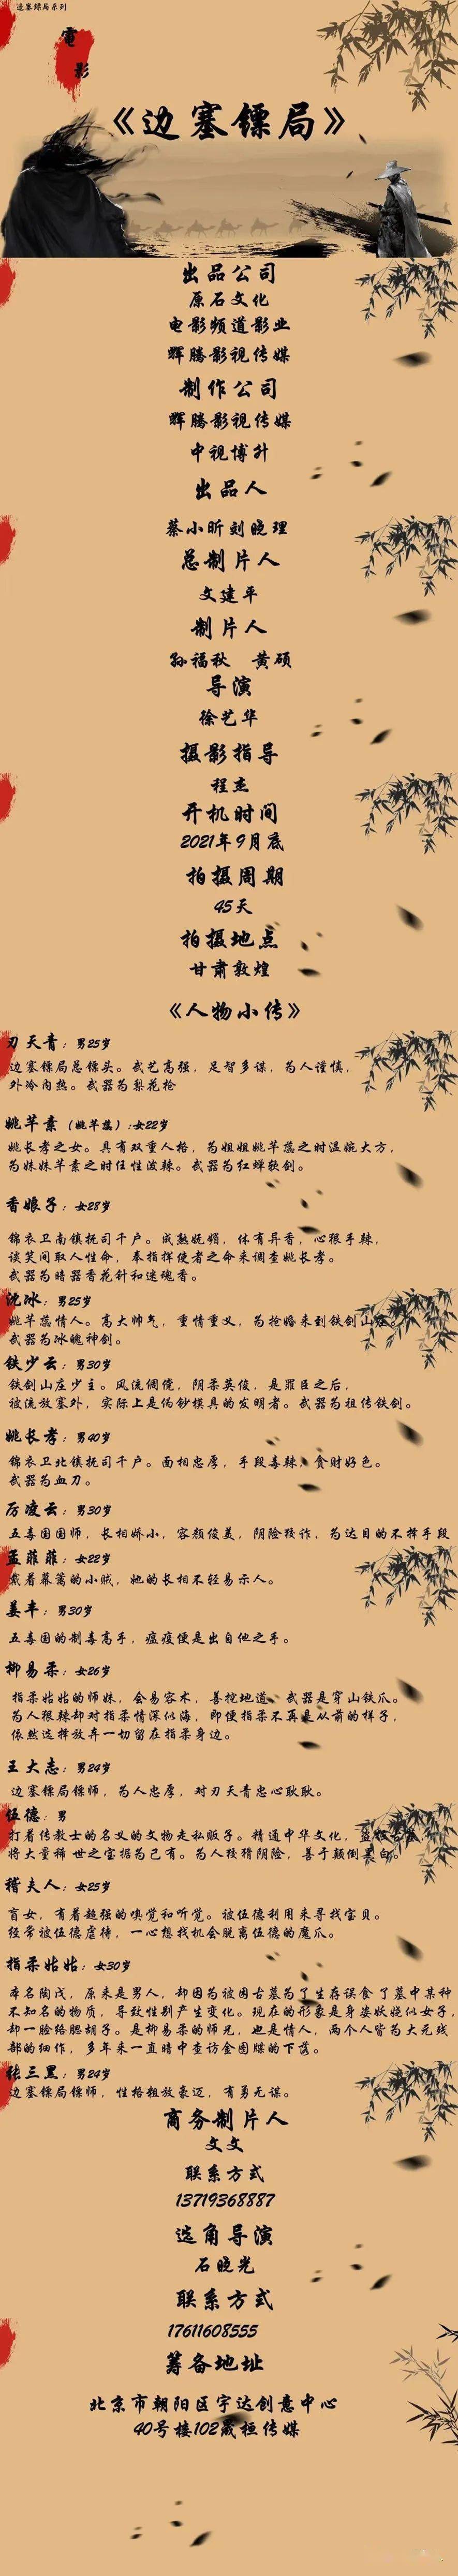 边塞镖局系列
電
影
《边塞镖局》
出品公司
原石文化
电影频道影业
辉腾影视传媒
制作公司
辉腾影视传媒
中视博升
出品人
蔡小昕刘晓理
总制片人
文建平
制片人
孙福秋 黄硕
导演
徐艺华
摄影指导
程杰
开机时间
2021年9月底
拍摄周期
45天
拍摄地点
甘肃敦煌
《人物小传》
刃天青：男25岁
边塞镖局总镖头。武艺高强，足智多谋，为人谨慎，
外冷内热。武器为梨花枪
姚芊素（姚芊蕊）:女22岁
姚长孝之女。具有双重人格，为姐姐姚芊蕊之时温婉大方，
为妹妹芊素之时任性泼辣。武器为红蝉软剑。
香娘子：女28岁
锦衣卫南镇抚司千户。成熟妩媚，体有异香，心狠手辣，
谈笑间取人性命，奉指挥使者之命来调查姚长孝。
武器为暗器香花针和迷魂香。
沈冰：男25岁
姚芊蕊情人。高大帅气，重情重义，为抢婚来到铁剑山庄。
武器为冰魄神剑。
铁少云：男30岁
铁剑山庄少主。风流倜傥，阴柔英俊，是罪臣之后，
被流放塞外，实际上是伪钞模具的发明者。武器为祖传铁剑。
姚长孝：男40岁
锦衣卫北镇抚司千户。面相忠厚，手段毒辣，贪财好色。
武器为血刀。
厉凌云：男30岁
五毒国国师，长相娇小，容颜俊美，阴险狡诈，为达目的不择手段
孟菲菲：女22岁
戴着幕篱的小贼，她的长相不轻易示人。
姜丰：男30岁
五毒国的制毒高手，瘟疫便是出自他之手。
柳易柔：女26岁
指柔姑姑的师妹，会易容术，善挖地道。武器是穿山铁爪。
为人狠辣却对指柔情深似海，即便指柔不再是从前的样子，
依然选择放弃一切留在指柔身边。
王大志：男24岁
边塞镖局镖师，为人忠厚，对刃天青忠心耿耿。
伍德：男
打着传教士的名义的文物走私贩子。精通中华文化，盗
将大量稀世之宝据为己有。为人狡猾阴险，善于颠倒黑白。
稽夫人：女25岁
盲女，有着超强的嗅觉和听觉。被伍德利用来寻找宝贝。
经常被伍德虐待，一心想找机会脱离伍德的魔爪。
指柔姑姑：女30岁
本名陶戊，原来是男人，却因为被困古墓为了生存误食了墓中某种
不知名的物质，导致性别产生变化。现在的形象是身姿妖娆似女子，
却一脸络腮胡子。是柳易柔的师兄，也是情人，两个人皆为大元残
部的细作，多年来一直暗中查访金图牒的下落。
张三黑：男24岁
边塞镖局镖师，性格粗放豪迈，有勇无谋。
商务制片人
文文
联系方式
13719368887
选角导演
石晓光
联系方式
17611608555
筹备地址
北京市朝阳区宇达创意中心
40号楼102晟桓传媒